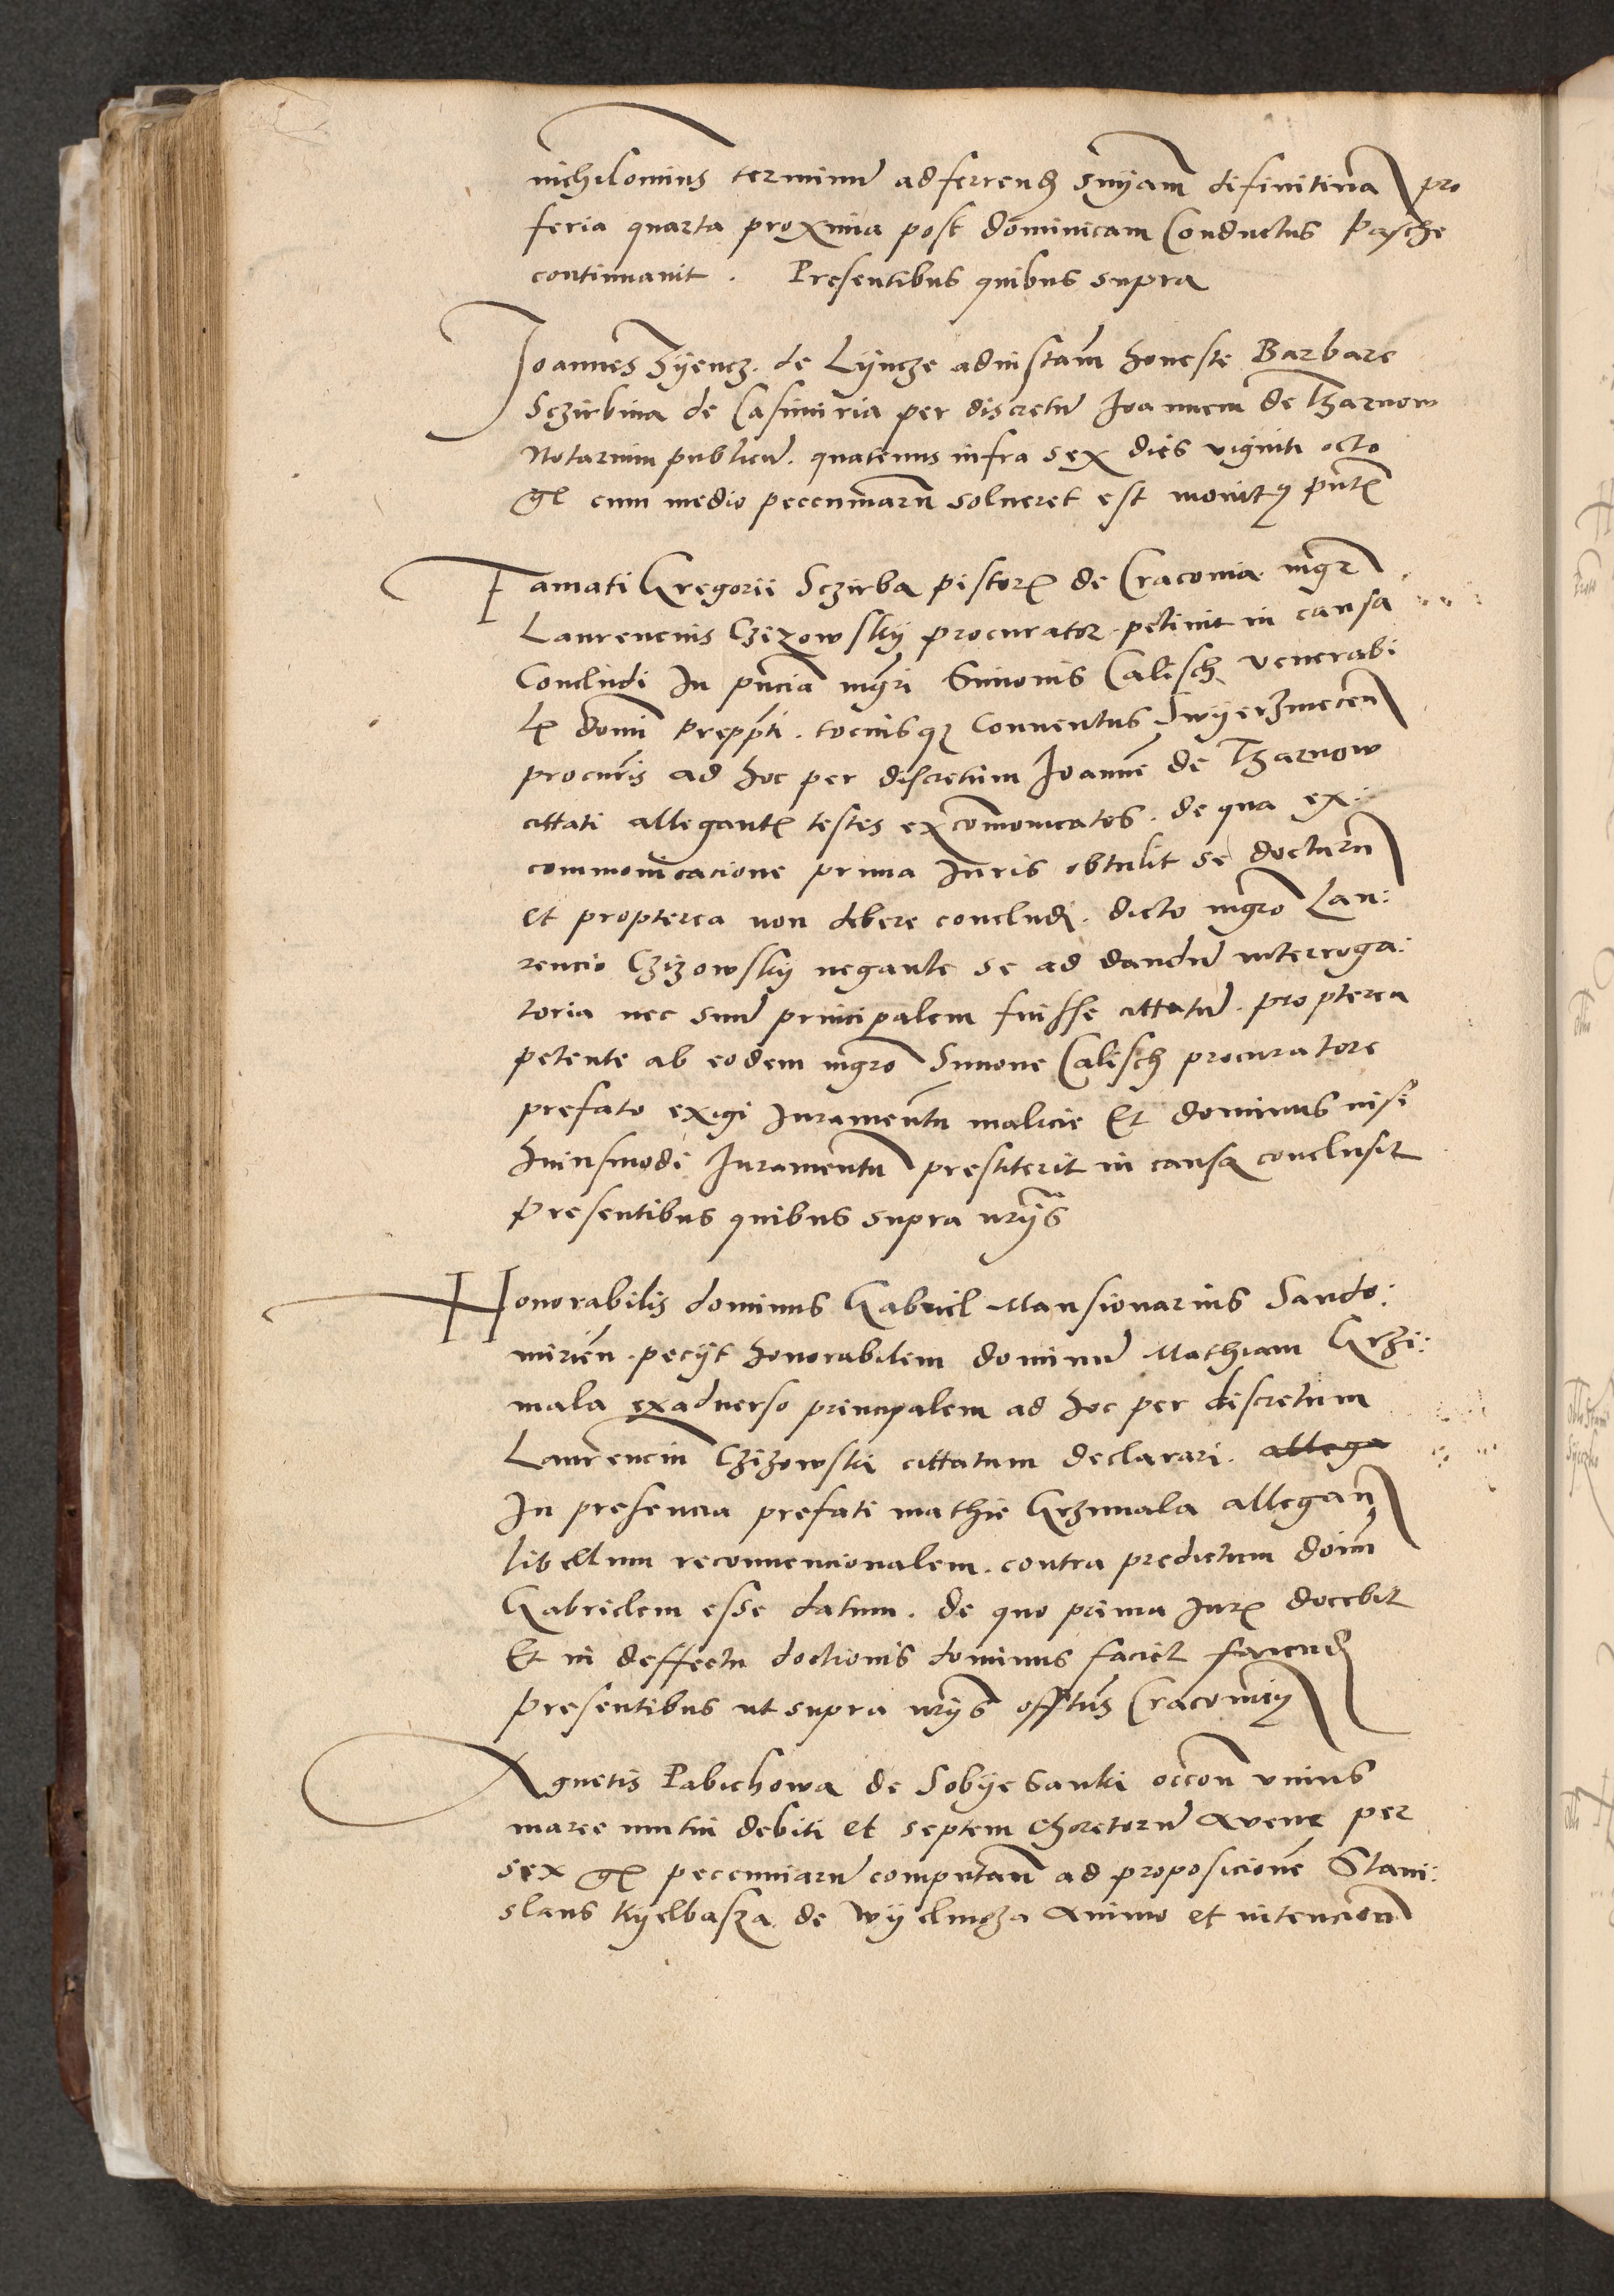 nichilominus terminu adferrend snyam difinitiua pro
feria quarta proxima post dominicam Conductus Pasche
continuauit . Presentibus quibus supra
Joannes Zyencz . de Lyncze adinstam honeste Barbare
Sczirbina de Casimiria per discretu Joannem de Tharnow
Notarium publicu . quatenus infra sex dies viginti octo
gr cum medio peccuniaru solueret est monitus pnte
Famati Gregorii Sczirba pistoris de Cracouia mgr
Laurencius Czizowsky procurator petiuit in causa
Concludi In pncia mgri Simonis Calisch venerabi
lis domi prepti . tociusq Conuentus Zwyerzinecen
procuris ad hoc per discretum Joanne de Tharnow
cittati allegantis testes excomonicatos . de qua ex:
commonicacione prima Juris obtulit se docturu
et propterea non debere conclud . dicto mgro Lau:
rencio Czizowsky negante se ad dandu interroga:
toria nec suu principalem fuisse cittatu . propterea
petente ab eodem mgro Simone Calisch procuratore
prefato exigi Juramentu malicie Et dominus nisi
huiusmodi Juramentu prestiterit in causa conclusit
Presentibus quibus supra nrys
Honorabilis dominus Gabriel Mansionarius Sando:
mirien . pecyt honorabilem dominu Mathiam Grzi:
mala exaduerso principalem ad hoc per discretum
Laurenciu Czizowski cittatum declarari . allega
In presencia prefati mathie Grzimala allegan
libellum reconuencionalem . contra predictum doim
Gabrielem esse datum . de quo prima Juris docebit
Et in deffectu doctionis dominus faciet faciend
Presentibus ut supra nrys offtus Cracouien
Agnetis Pabichowa de Sobyesanki occon vnius
marce mutui debiti et septem Choretoru Auene per
sex gr peccuniaru computan ad proposicione Stani:
slaus Kyelbasza de Wyelmoza Animo et intencion